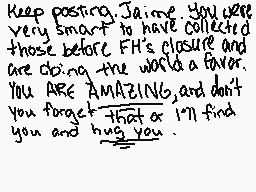 Keep posting, Jaime. You were
very smart to have collected
those before FH's closure and
are doing the world a favor.
You ARE AMAZING, and don't
you forget that or I'll find
you and hug you.